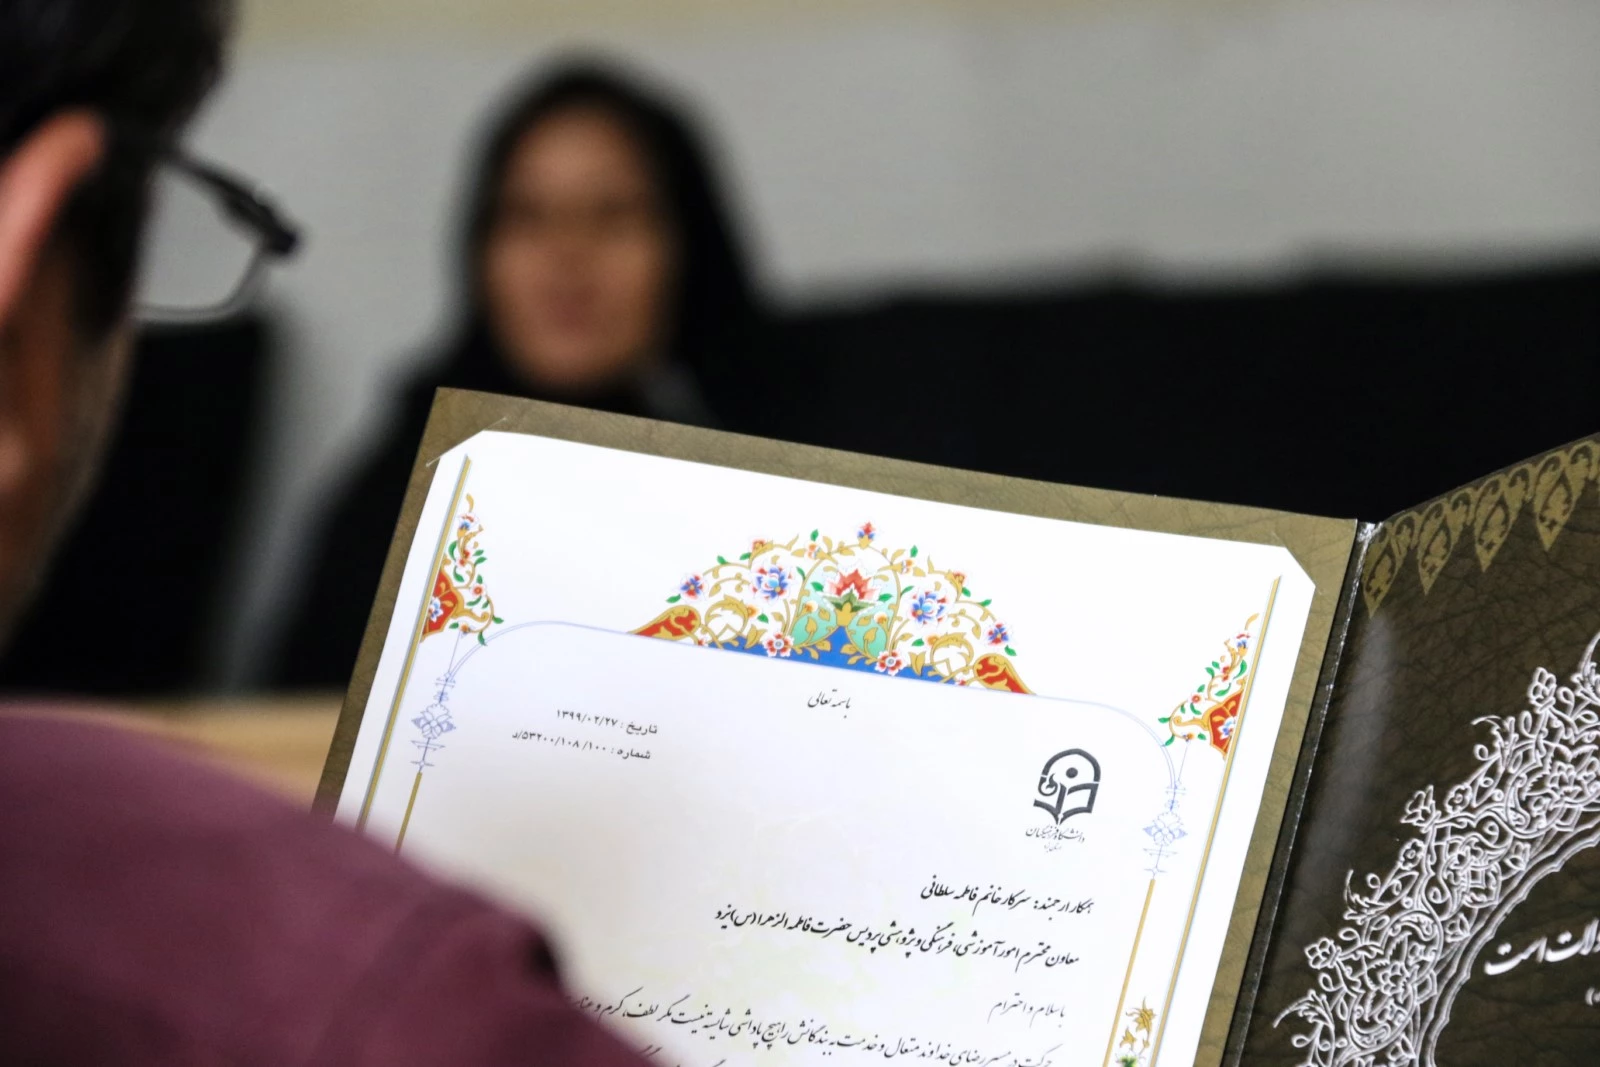 باسمه تعالی
تاریخ : ۱۳۹۹/۰۲/۲۷
شماره : ۵۳۲۰۰/۱۰۸/۱۰۰/د
دانشگاه فرهنگیان
همکار ارجمند: سرکار خانم فاطمه سلطانی
معاون محترم امور آموزشی، فرهنگی و پژوهشی پردیس حضرت فاطمه الزهرا (س) یزد
با سلام و احترام
حرکت در مسیر رضای خداوند متعال و خدمت به بندگانش را هیچ پاداشی شایسته نیست مگر لطف، کرم و
است